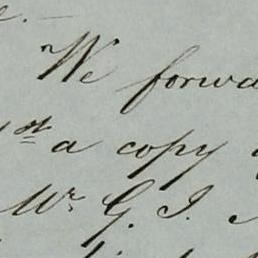 We forwa
st a copy
Mr G. I.